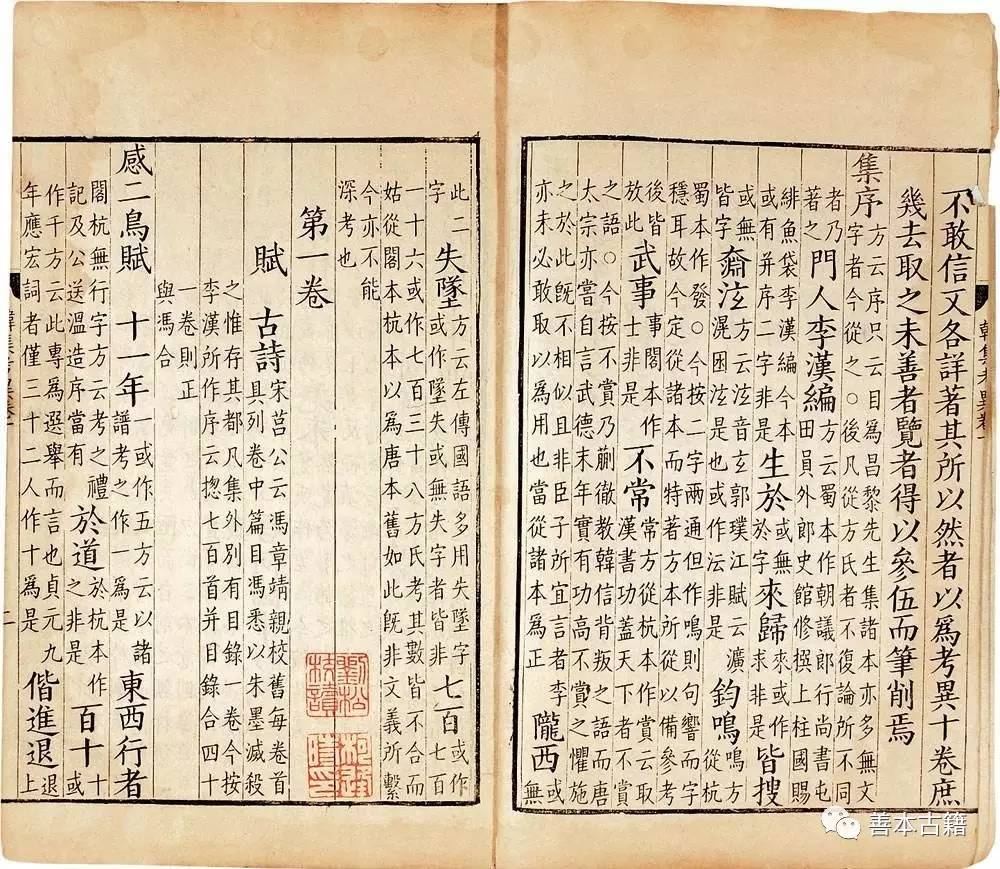 不敢信又各詳著其所以然者以爲考異十卷庶
幾去取之未善者覽者得以參伍而筆削焉
集序方云序只云目爲昌黎先生集諸本亦多無文
字者今從之○後凡從方氏者不復論所不同
者乃著之門人李漢編方云蜀本作朝議郎行尚書屯
田員外郎史館修撰上柱國賜
緋魚袋李漢編今本
或有并序二字非是生於或無於字來歸來或作求非是皆搜
或無皆字奫泫方云泫音玄郭璞江賦云
滉囦泫是也或作沄非是鈞鳴鳴方從杭
蜀本作發○今按二字兩通但作鳴則句響而字
穩耳故今定從諸本而特著方本所從以備參考
後皆放此武事事閣本作士非是不常常方從杭本作賞云取
漢書功蓋天下者不賞
之語○今按不賞乃蒯徹教韓信背叛之語而唐
太宗亦嘗自言武德末年實有功高不賞之懼施
之於此旣不相似且非臣子所宜言者李
亦未必敢取以爲用也當從諸本爲正隴西或無
此二字失墜方云左傳國語多用失墜字
或作墜失或無失字者皆非七百或作七百
一十六或作七百三十八方氏考其數皆不合而
姑從閣本杭本以爲唐本舊如此旣非文義所繫
今亦不能
深考也
第一卷
賦 古詩宋莒公云馮章靖親校舊每卷首
具列卷中篇目馮悉以朱墨滅殺
之惟存其都凡集外別有目錄一卷今按
李漢所作序云揔七百首并目錄合四十
一卷則正
與馮合
感二鳥賦 十一年一或作五方云以諸
譜考之作一爲是東西行者
閣杭無行字方云考之禮
記及公送溫造序當有於道於杭本作之非是百十十或
作千方云此專爲選舉而言也貞元九
年應宏詞者僅三十二人作十爲是偕進退退上
二
善本古籍